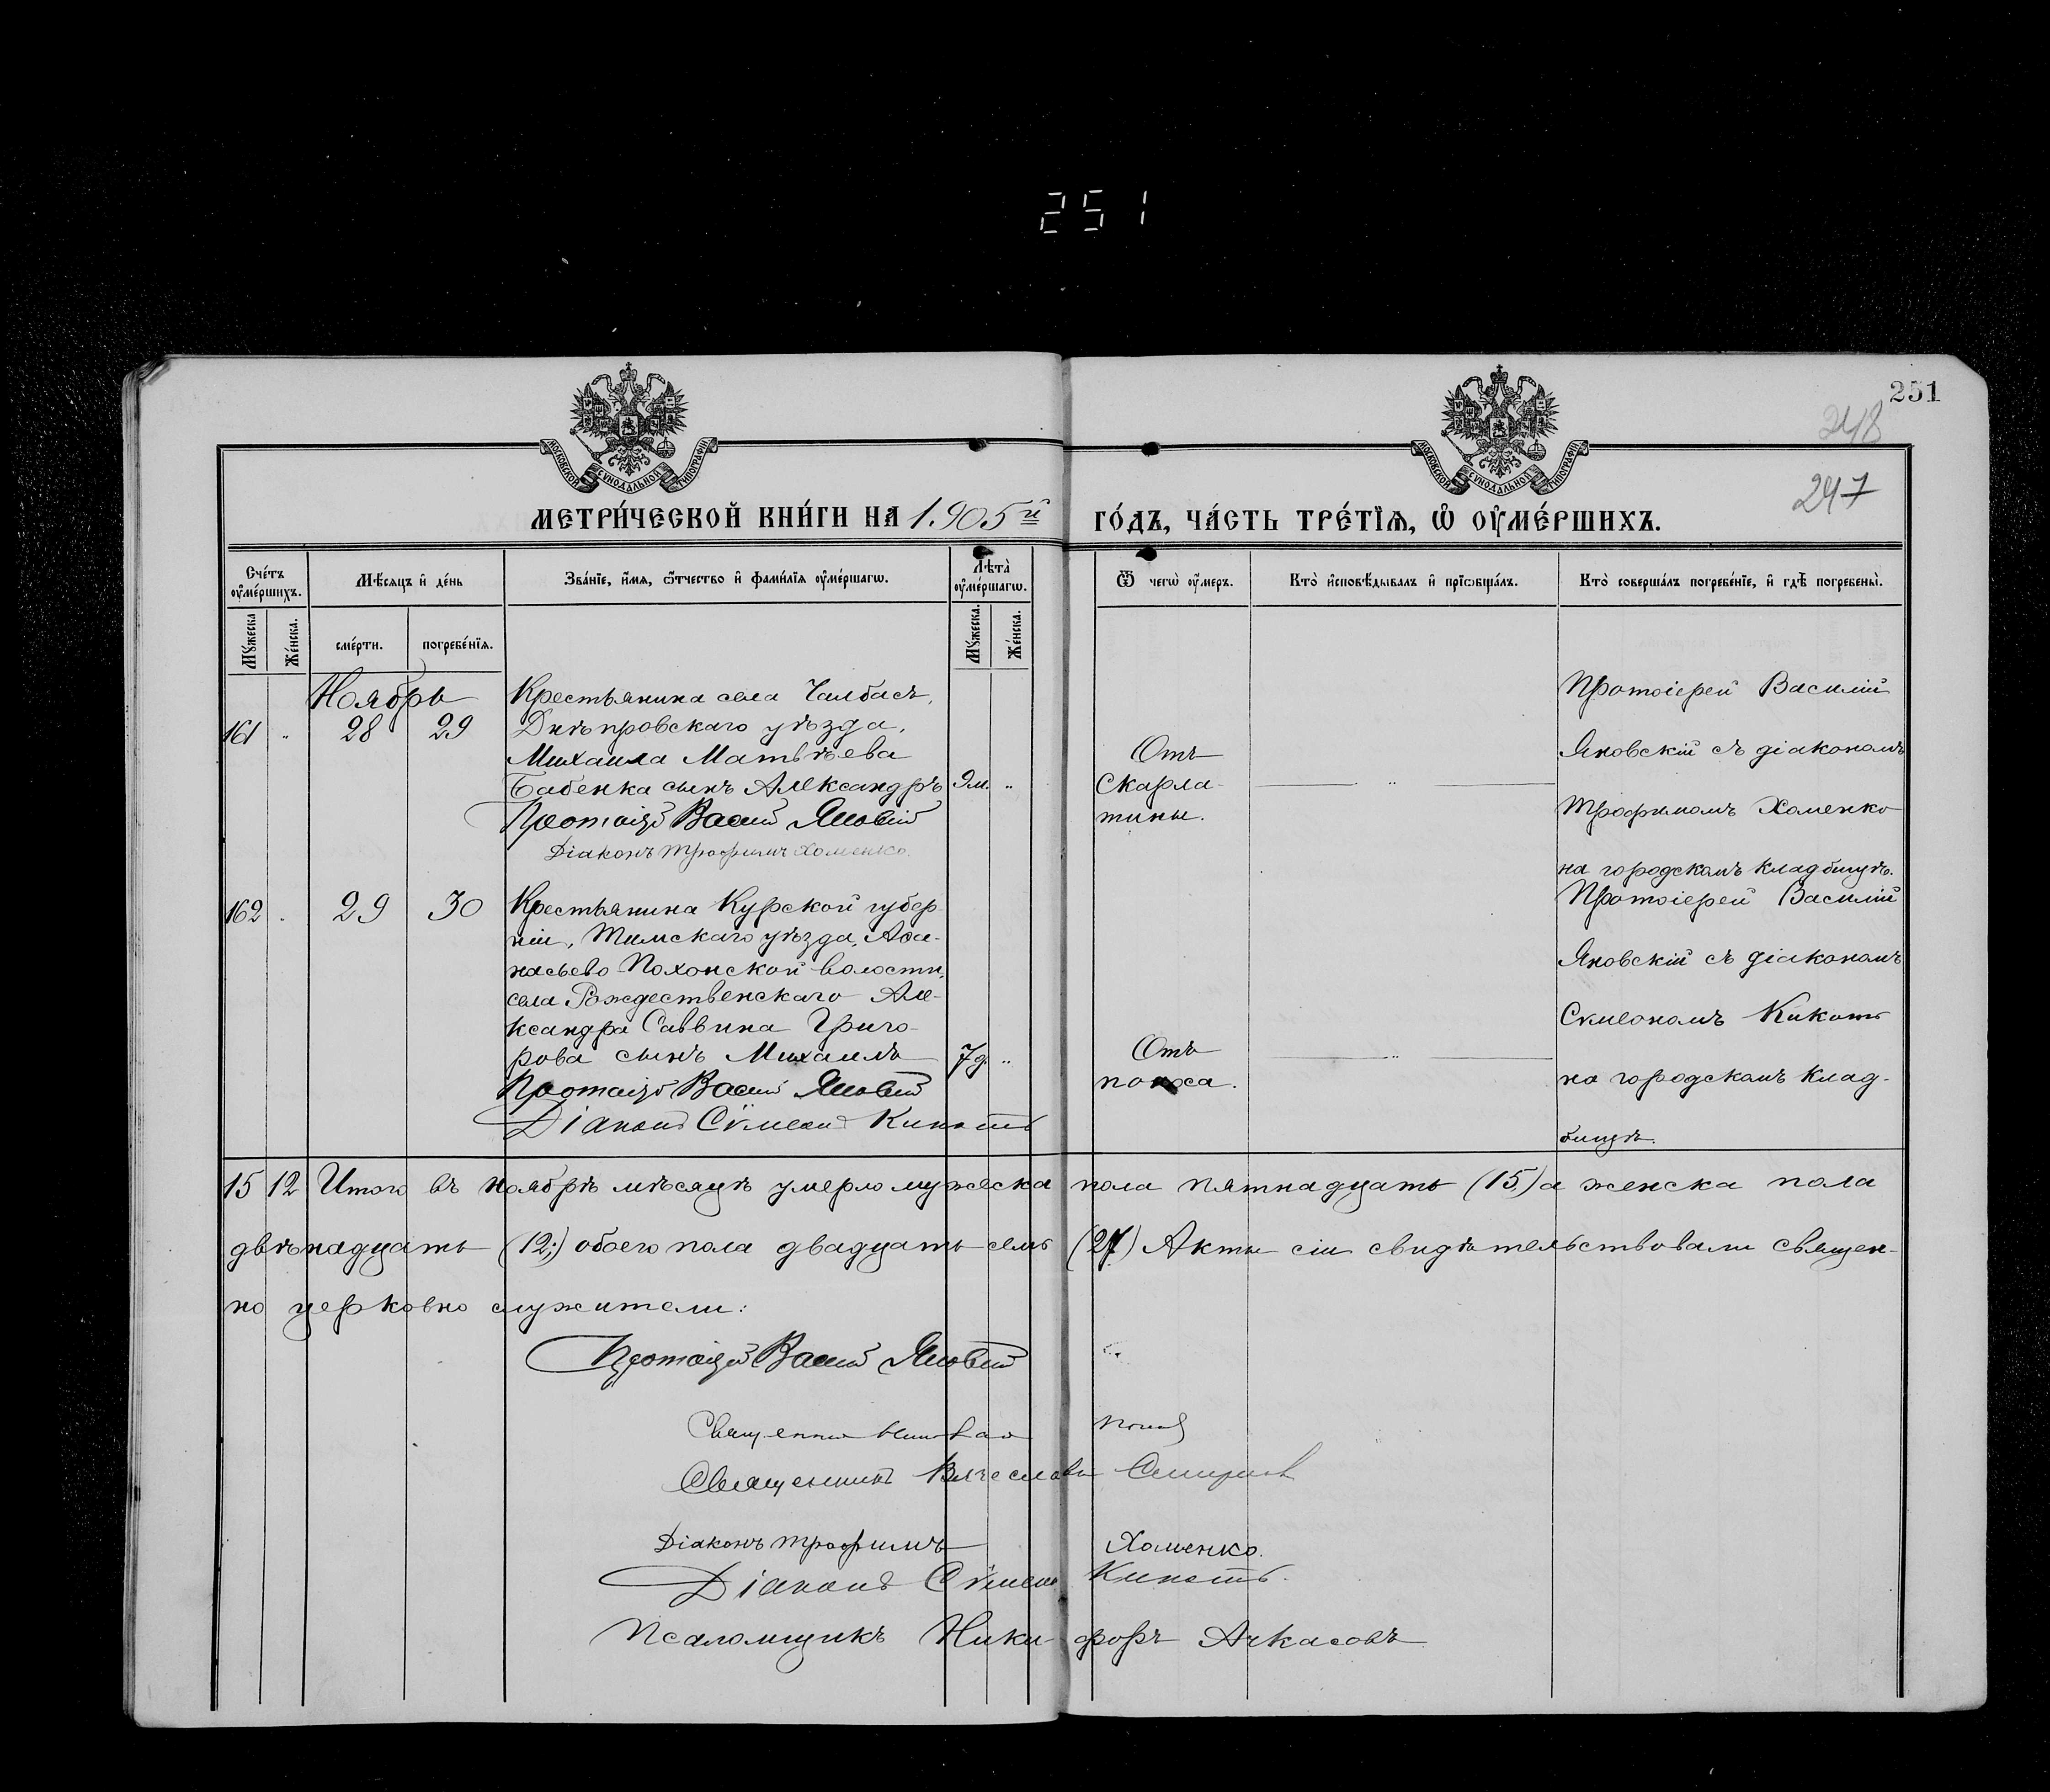 251
251
248
247
МОСКОВСКОЙ СѴНОДАЛЬНОЙ ТИПОГРАФІИ
МОСКОВСКОЙ СѴНОДАЛЬНОЙ ТИПОГРАФІИ
МЕТРИ́ЧЕСКОЙ КНИ́ГИ НА 1905й ГО́ДЪ, ЧА́СТЬ ТРЕ́ТЇѦ, Ѡ҆ ОУ҆МЕ́РШИХЪ.
Сче́тъ оу҆ме́ршихъ.
Мꙋ́жеска.
Же́нска.
Мѣ́сѧцъ и҆ де́нь
сме́рти.
погребе́нїѧ.
Зва́нїе, и҆́мѧ, ѻ҆́тчество и҆ фами́лїѧ оу҆ме́ршагѡ.
Лѣ́та̀ оу҆ме́ршагѡ.
Мꙋ́жеска.
Же́нска.
Ѿ чегѡ̀ оу҆́меръ.
Кто̀ и҆сповѣ́дывалъ и҆ прїѡбща́лъ.
Кто̀ соверша́лъ погребе́нїе, и҆ гдѣ̀ погребены̀.
Ноябрь
161 " 28 29
Крестьянина села Чалбасъ,
Днѣпровскаго уѣзда,
Михаила Матвѣева
Бабенка сынъ Александръ 9м. "
Протоіер Василій Яновскій
Діаконъ Трофимъ Хоменко.
Отъ
скарла-
тины.
Протоіерей Василій
Яновскій съ діакономъ
Трофимомъ Хоменко
на городскомъ кладбищѣ.
162 . 29 30
Крестьянина Курской губер-
ніи, Тимскаго уѣзда, Аѳа-
насьево Похонской волости,
села Рождественскаго Але-
ксандра Саввина Григо-
рова сынъ Михаилъ 7д. "
Протоіер Василій Яновскій
Діаконъ Сѵмеонъ Кикоть
Отъ
поноса.
Протоіерей Василій
Яновскій съ діакономъ
Сѵмеономъ Кикоть
на городскомъ клад-
бищѣ.
15 12 Итого въ ноябрѣ мѣсяцѣ умерло мужеска пола пятнадцать (15) а женска пола
двѣнадцать (12;) обоего пола двадцать семь (27) Акты сіи свидѣтельствовали священ-
но церковно служители:
Протоіерей Василій Яновскій
Священникъ
Священникъ Вячеславъ Смирнов
Діаконъ Трофимъ Хоменко.
Діаконъ Сѵмеон Кикоть.
Псаломщикъ Ники-форъ Ачкасовъ